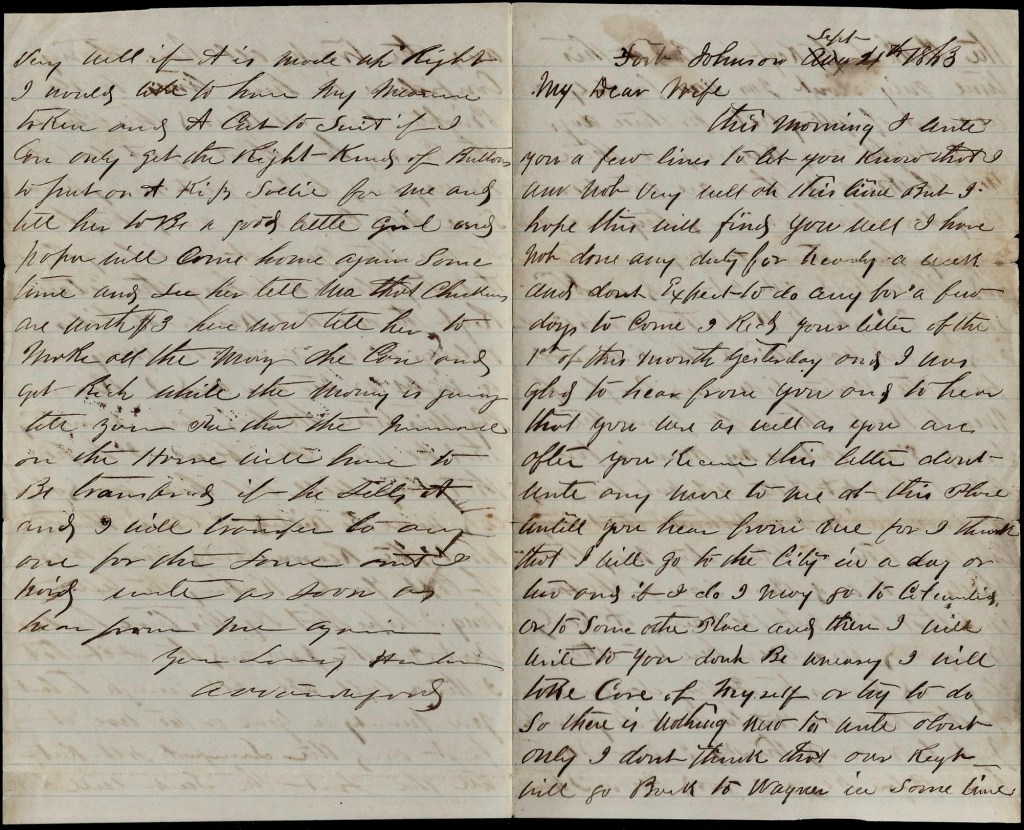 Fort Johnson Sept 4th 1863
My Dear Wife
This morning I write
you a few lines to let you Know that I
am not very well at this time But I
hope this will find you well I have
not done any duty for nearly a week
and dont Expect to do any for a few
days to Come I Recd your letter of the
1st of this month yesterday and I was
glad to hear from you and to hear
that you were as well as you are
after you receive this letter dont
write any more to me at this place
untill you hear from me for I think
that I will go to the City in a day or
two and if I do I may go to Columbia
or to Some other Place and then I will
write to you dont Be uneasy I will
take Care of Myself or try to do
So there is nothing new to write about
only I dont think that our Regt
will go Back to Wagner in Some time
Very well if it is made up Right
I would like to have my measure
taken and it Cut to Suit if I
Can only get the Right Kind of Buttons
to put on it Kiss Sallie for me and
tell her to Be a good little girl and
papa will Come home again Some
time and see her tell Ma that Chickens
are worth $3 here now tell her to
Make all the money she Can and
get Rich while the money is going
tell your that the
on the Horse will have to
Be transferred if he Sells it
and I will transfer to any
one for the Same
write as soon as
hear from me again
Your Loving Husband
A W Vandiford